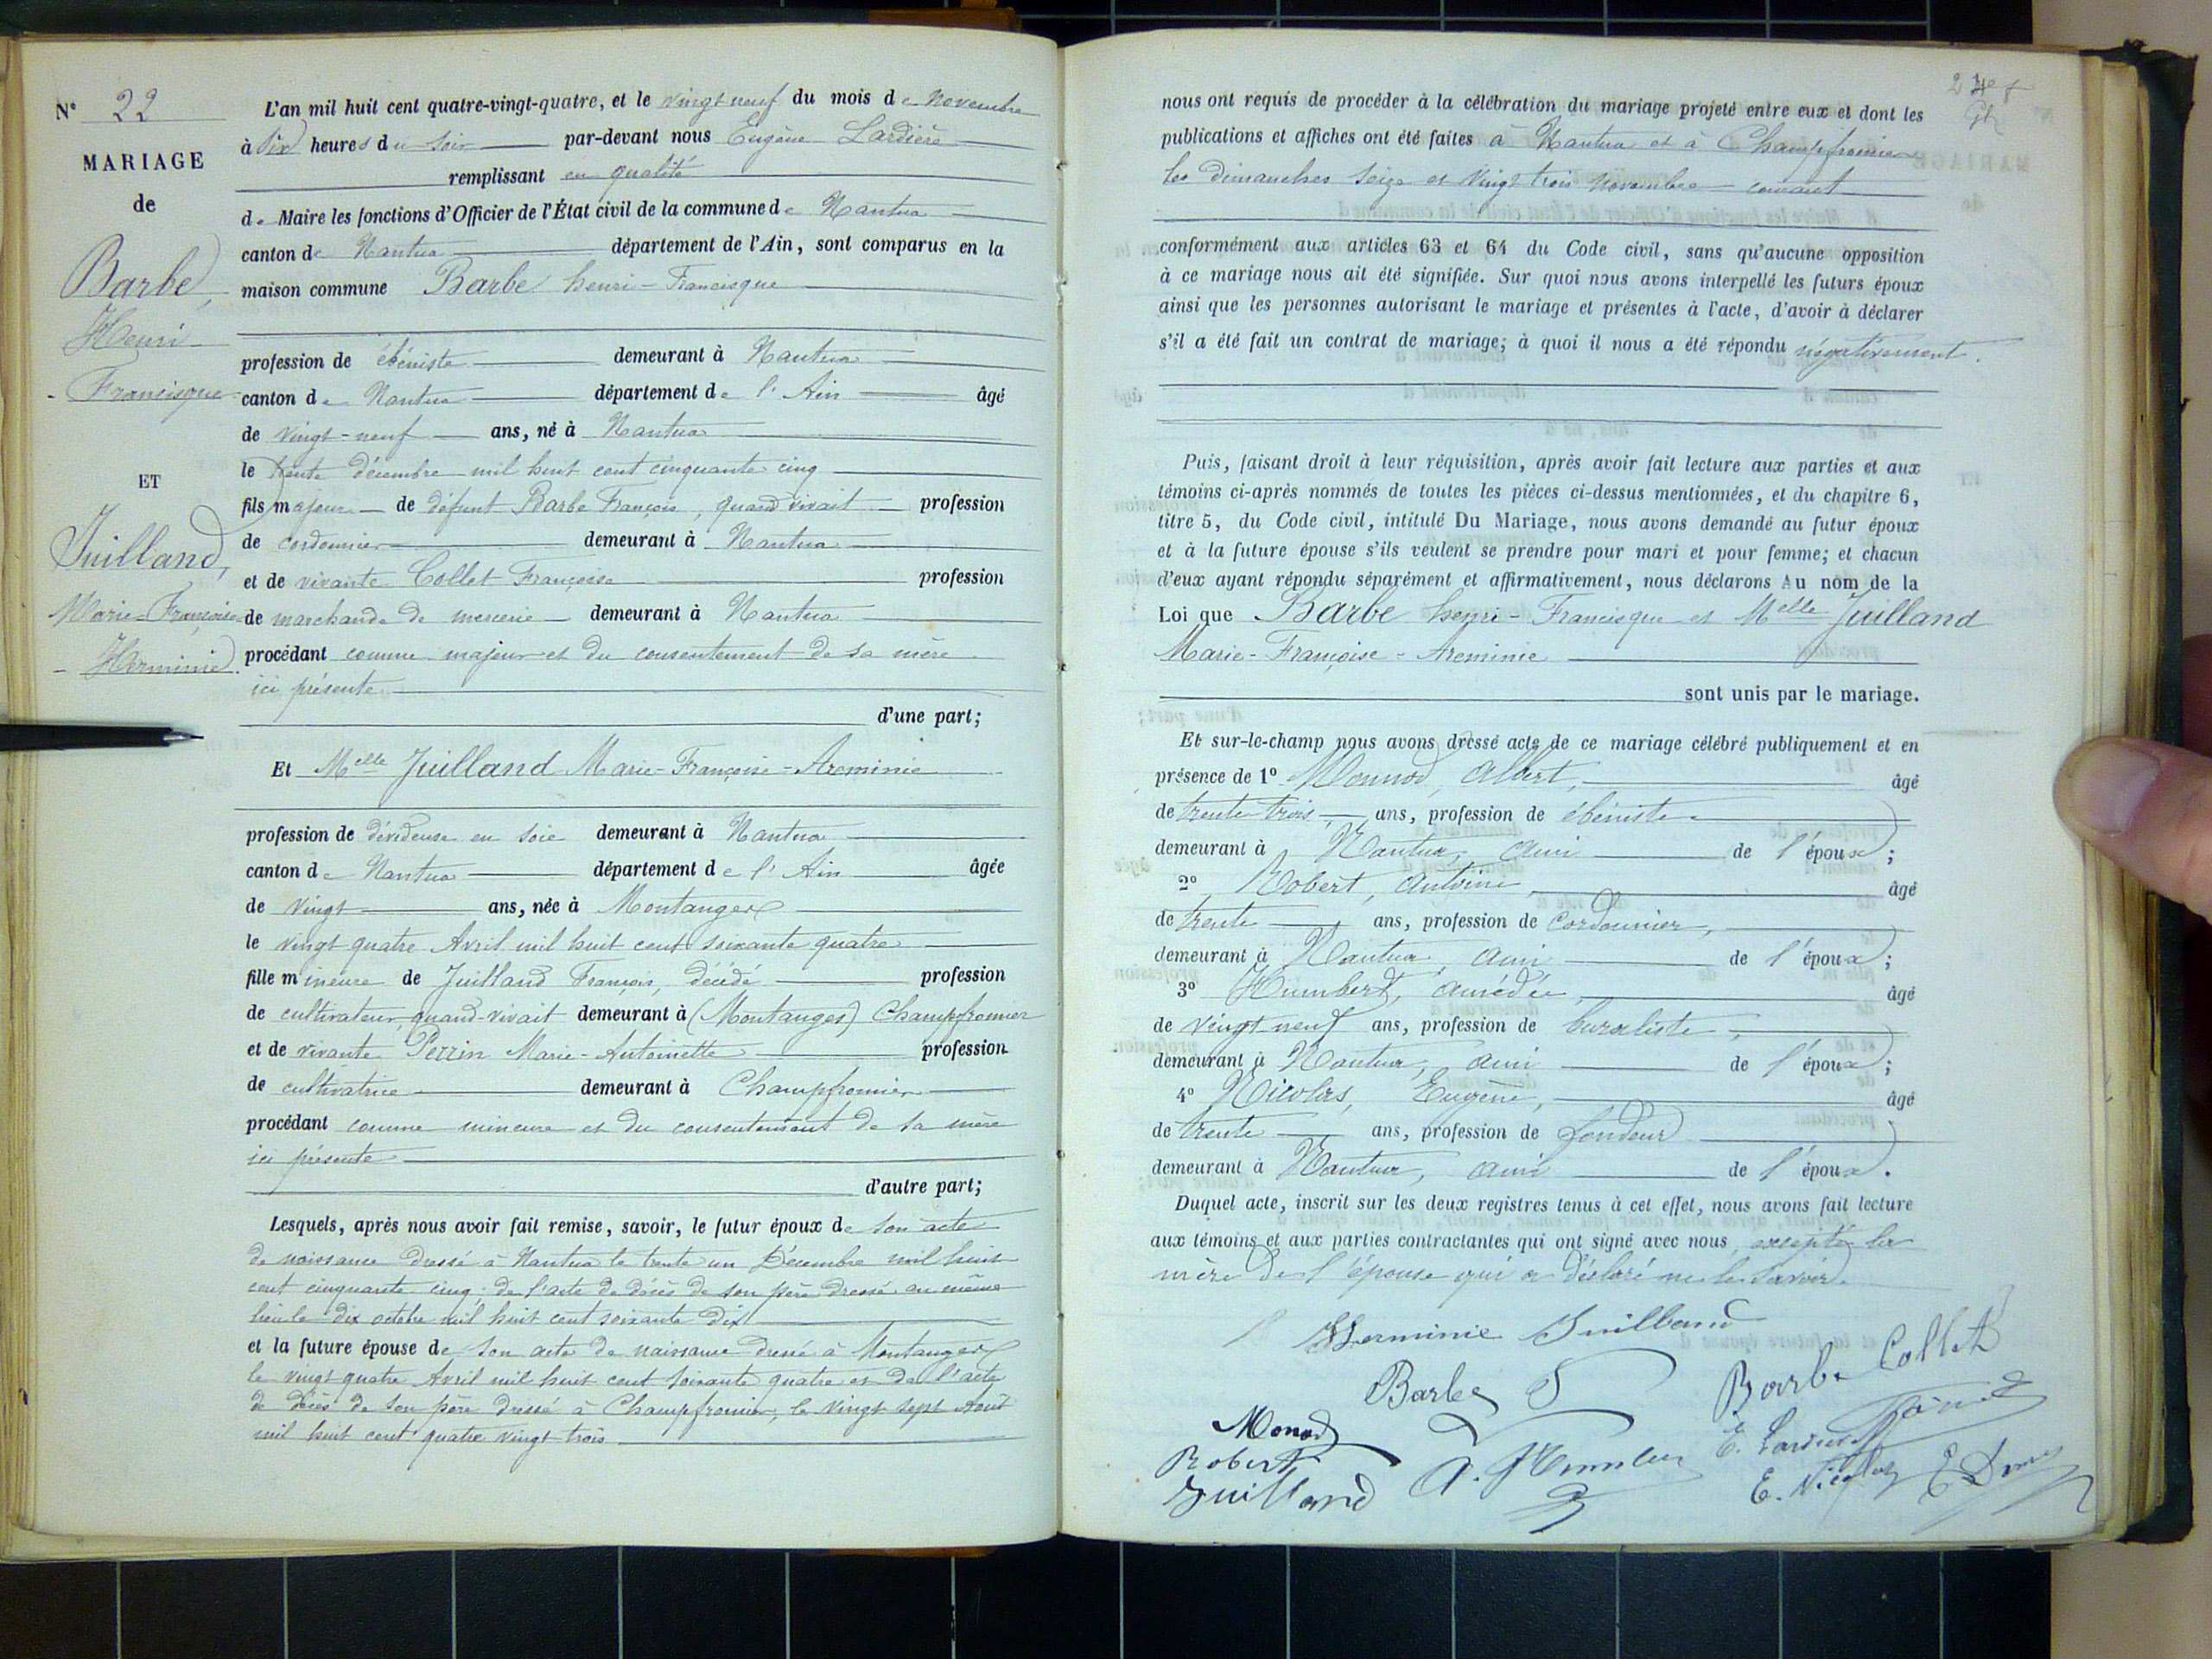 N° 22
MARIAGE
de
Barbe,
Henri-
Francisque
ET
Juilland,
Marie-Françoise-
Herminie.
L'an mil huit cent quatre-vingt-quatre, et le vingt neuf du mois de Novembre
à Six heures du Soir par-devant nous Eugène Lardière
remplissant en qualité
de Maire les fonctions d'Officier de l'État civil de la commune de Nantua
canton de Nantua département de l'Ain, sont comparus en la
maison commune Barbe henri-Francisque
profession de ébéniste demeurant à Nantua
canton de Nantua département de l'Ain âgé
de vingt-neuf ans, né à Nantua
le trente Décembre mil huit cent cinquante cinq
fils majeur de défunt Barbe François, quand vivait profession
de cordonnier demeurant à Nantua
et de vivante Collet Françoise profession
de marchande de mercerie demeurant à Nantua
procédant comme majeur et du consentement de sa mère
ici présente
d'une part;
Et Melle Juilland Marie-Françoise-Areminie
profession de dévideuse en soie demeurant à Nantua
canton de Nantua département de l'Ain âgée
de vingt ans, née à Montanges
le vingt quatre Avril mil huit cent soixante quatre
fille mineure de Juilland François, décédé profession
de cultivateur, quand-vivait demeurant à (Montanges) Champfromier
et de vivante Perrin Marie-Antoinette profession
de cultivatrice demeurant à Champfromier
procédant comme mineure et du consentement de sa mère
ici présente
d'autre part;
Lesquels, après nous avoir fait remise, savoir, le futur époux de son acte
de naissance dressé à Nantua le trente un Décembre mil huit
cent cinquante cinq; de l'acte de décès de son père dressé au même
lieu le dix octobre mil huit cent soixante dix
et la future épouse de son acte de naissance dressé à Montanges
le vingt quatre Avril mil huit cent soixante quatre et de l'acte
de décès de son père dressé à Champfromier, le vingt sept Août
mil huit cent quatre vingt trois
nous ont requis de procéder à la célébration du mariage projeté entre eux et dont les
publications et affiches ont été faites à Nantua et à Champfromier
les dimanches seize et vingt trois novembre courant
conformément aux articles 63 et 64 du Code civil, sans qu'aucune opposition
à ce mariage nous ait été signifiée. Sur quoi nous avons interpellé les futurs époux
ainsi que les personnes autorisant le mariage et présentes à l'acte, d'avoir à déclarer
s'il a été fait un contrat de mariage; à quoi il nous a été répondu négativement.
Puis, faisant droit à leur réquisition, après avoir fait lecture aux parties et aux
témoins ci-après nommés de toutes les pièces ci-dessus mentionnées, et du chapitre 6,
titre 5, du Code civil, intitulé Du Mariage, nous avons demandé au futur époux
et à la future épouse s'ils veulent se prendre pour mari et pour femme; et chacun
d'eux ayant répondu séparément et affirmativement, nous déclarons Au nom de la
Loi que Barbe henri-Francisque et Melle Juilland
Marie-Françoise-Areminie
sont unis par le mariage.
Et sur-le-champ nous avons dressé acte de ce mariage célébré publiquement et en
présence de 1° Monnod, Albert, âgé
de trente trois ans, profession de ébéniste
demeurant à Nantua, ami de l'époux;
2° Robert, Antoine, âgé
de trente ans, profession de Cordonnier,
demeurant à Nantua, ami de l'époux;
3° Humbert, Amédée, âgé
de vingt neuf ans, profession de buraliste,
demeurant à Nantua, ami de l'époux;
4° Nicolas, Eugène, âgé
de trente ans, profession de fondeur
demeurant à Nantua, ami de l'époux.
Duquel acte, inscrit sur les deux registres tenus à cet effet, nous avons fait lecture
aux témoins et aux parties contractantes qui ont signé avec nous, excepté la
mère de l'épouse qui a déclaré ne le savoir.
Herminie Juilland
Barbe
Barbe Collet
Monod
Robert
Juilland
E. Nicolas